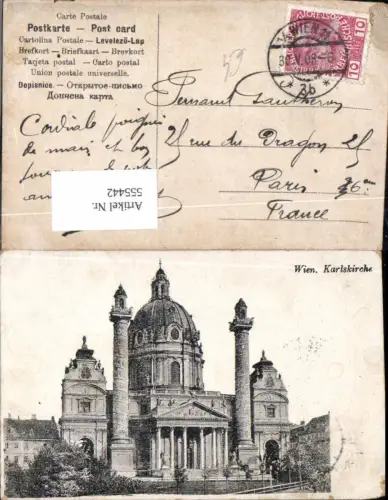 Carte Postale
Postkarte — Post card
Cartolina Postale — Levelező-Lap
Brefkort — Briefkaart — Brevkort
Tarjeta postal — Carto postal
Union postale universelle.
Dopisnice — Открытое-письмо
Дописна карта
WIEN
30.V.08
3b
10
10
53
Fernand Gautheron
25 rue du Dragon 25
Paris 6e
France
Cordiale poignée
de main et bon
Artikel Nr.
555442
Wien, Karlskirche